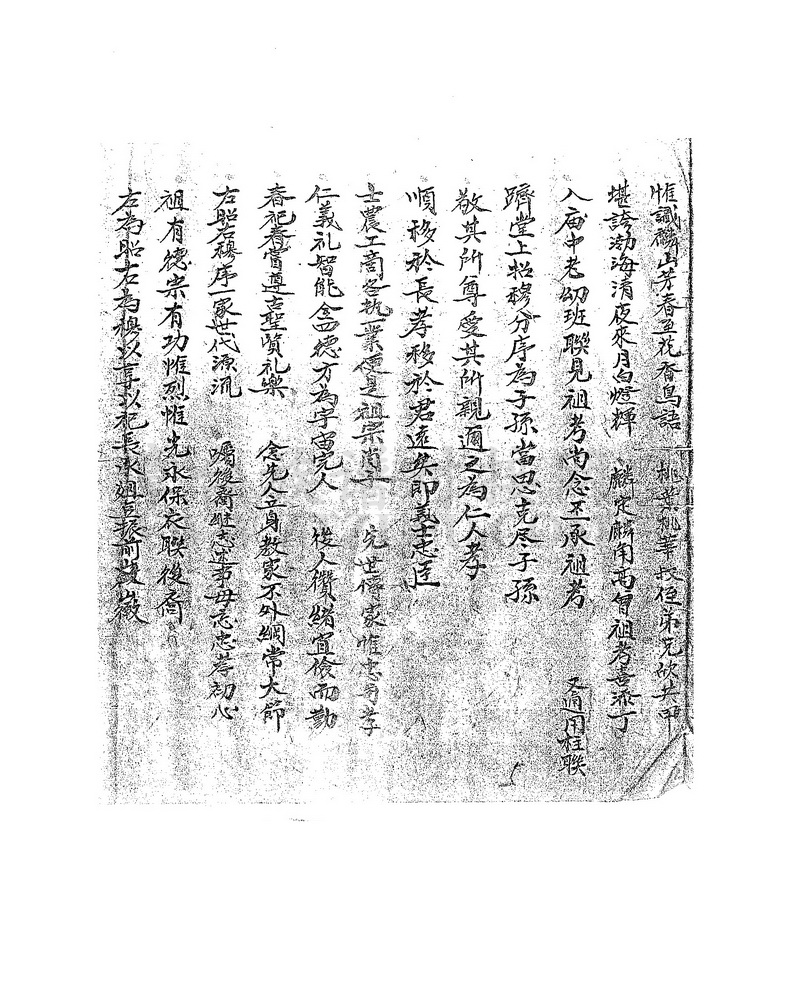 惟識麟山芳春至花香鳥語 桃葉桃華叔侄弟兄欣共
堪誇渤海清夜來月白燈輝 麟定麟角高曾祖考喜添丁
入庙中老幼班聯見祖考尚念丕承祖考 又通用柱联
躋堂上招穆分序為子孫當思克尽子孫
敬其所尊愛其所親邇之為仁人孝
順移於長孝移於君遠矣即義士忠臣
士農工商各執一業便是祖宗肖子 先世傳家惟忠与孝
仁義礼智能全四德方為宇宙完人 後人纘緒宜儉而勤
春祀春嘗遵古聖賢礼樂 念先人立身教家不外綱常大節
左昭右穆序一家世代源流 囑後裔継志述事毋忘忠孝初心
祖有德宗有功惟烈惟光永保衣聯後裔
左為昭右為穆以享以祀長承俎豆振前徽